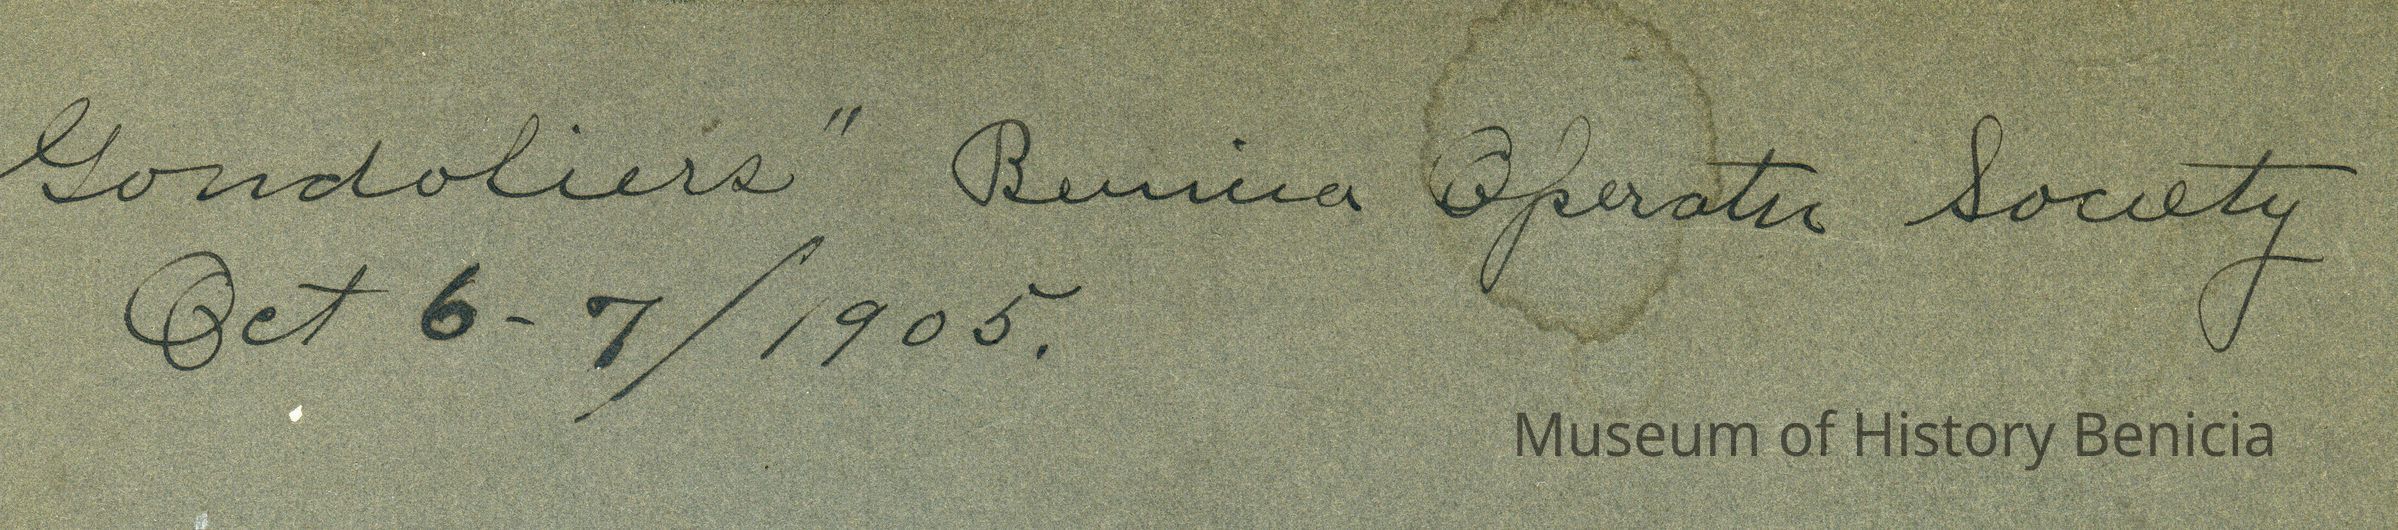 Gondoliers" Benicia Operatic Society
Oct 6-7/1905.
Museum of History Benicia